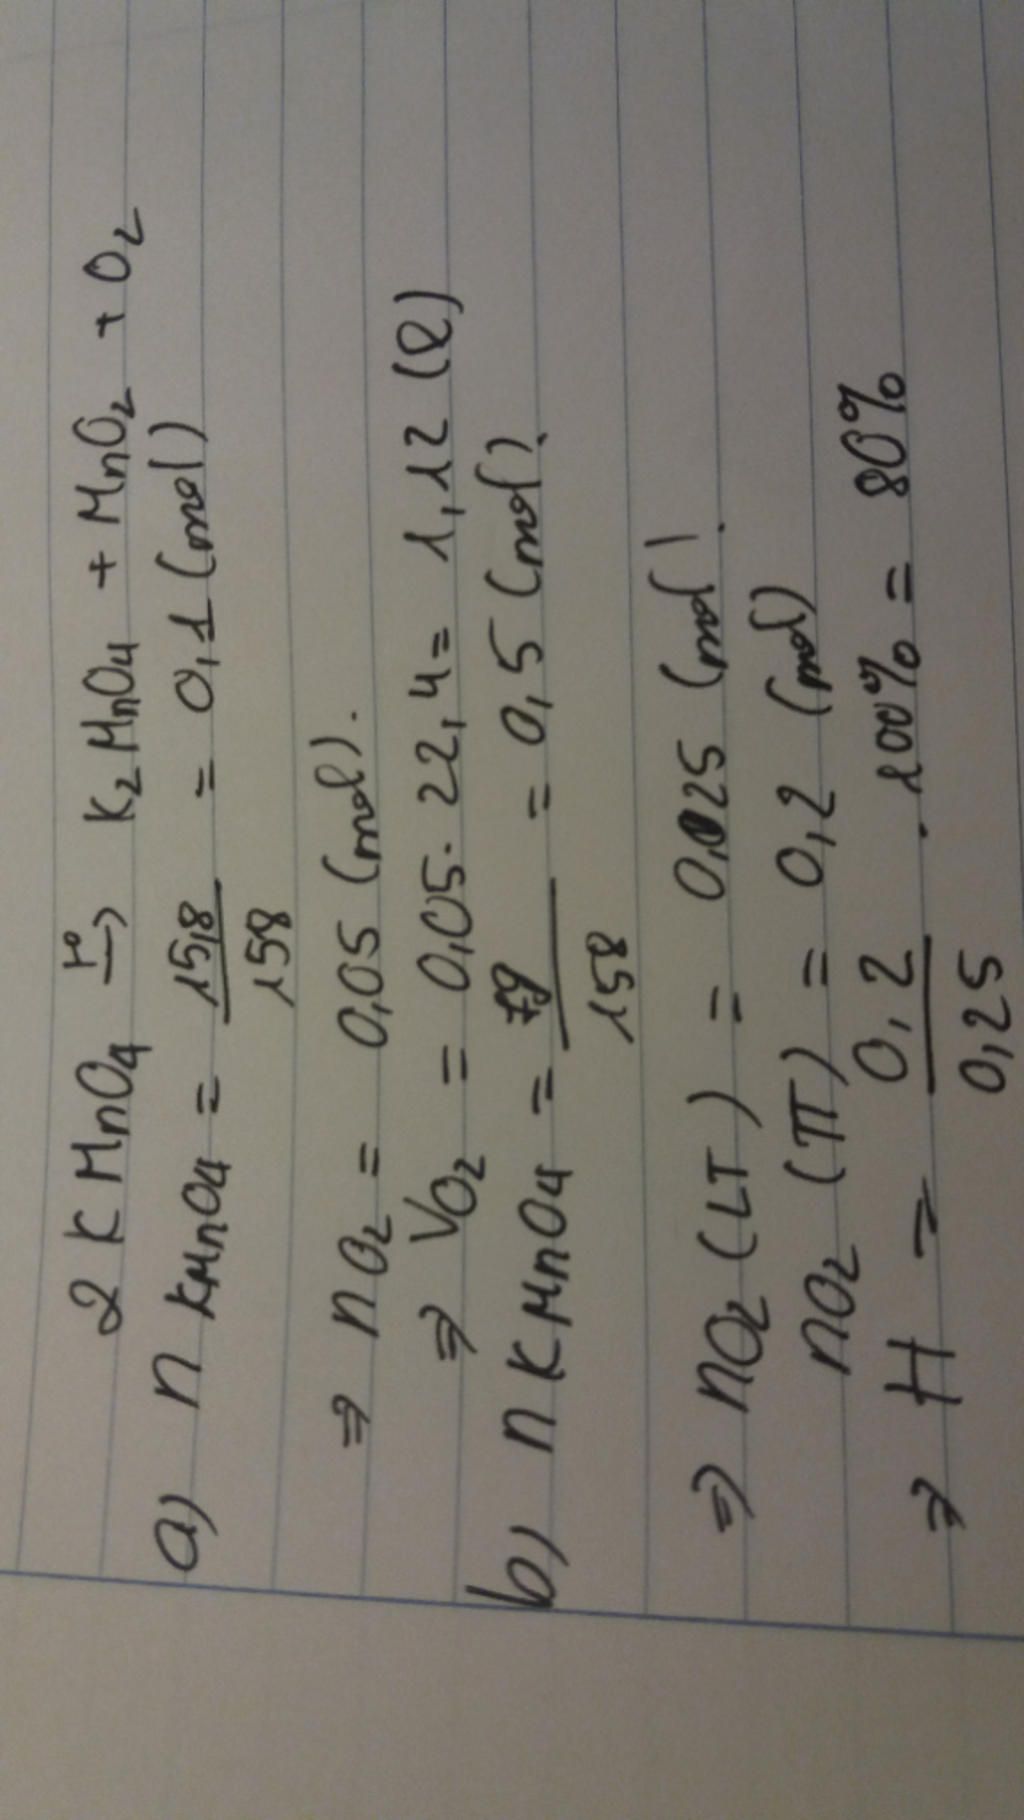 2 KMnO4 t° → K2MnO4 + MnO2 + O2
a) n KMnO4 = 15,8 / 158 = 0,1 (mol)
⇒ nO2 = 0,05 (mol).
⇒ VO2 = 0,05 . 22,4 = 1,12 (l)
b) n KMnO4 = 79 / 158 = 0,5 (mol).
⇒ nO2 (LT) = 0,25 (mol).
nO2 (TT) = 0,2 (mol)
⇒ H = 0,2 / 0,25 . 100% = 80%